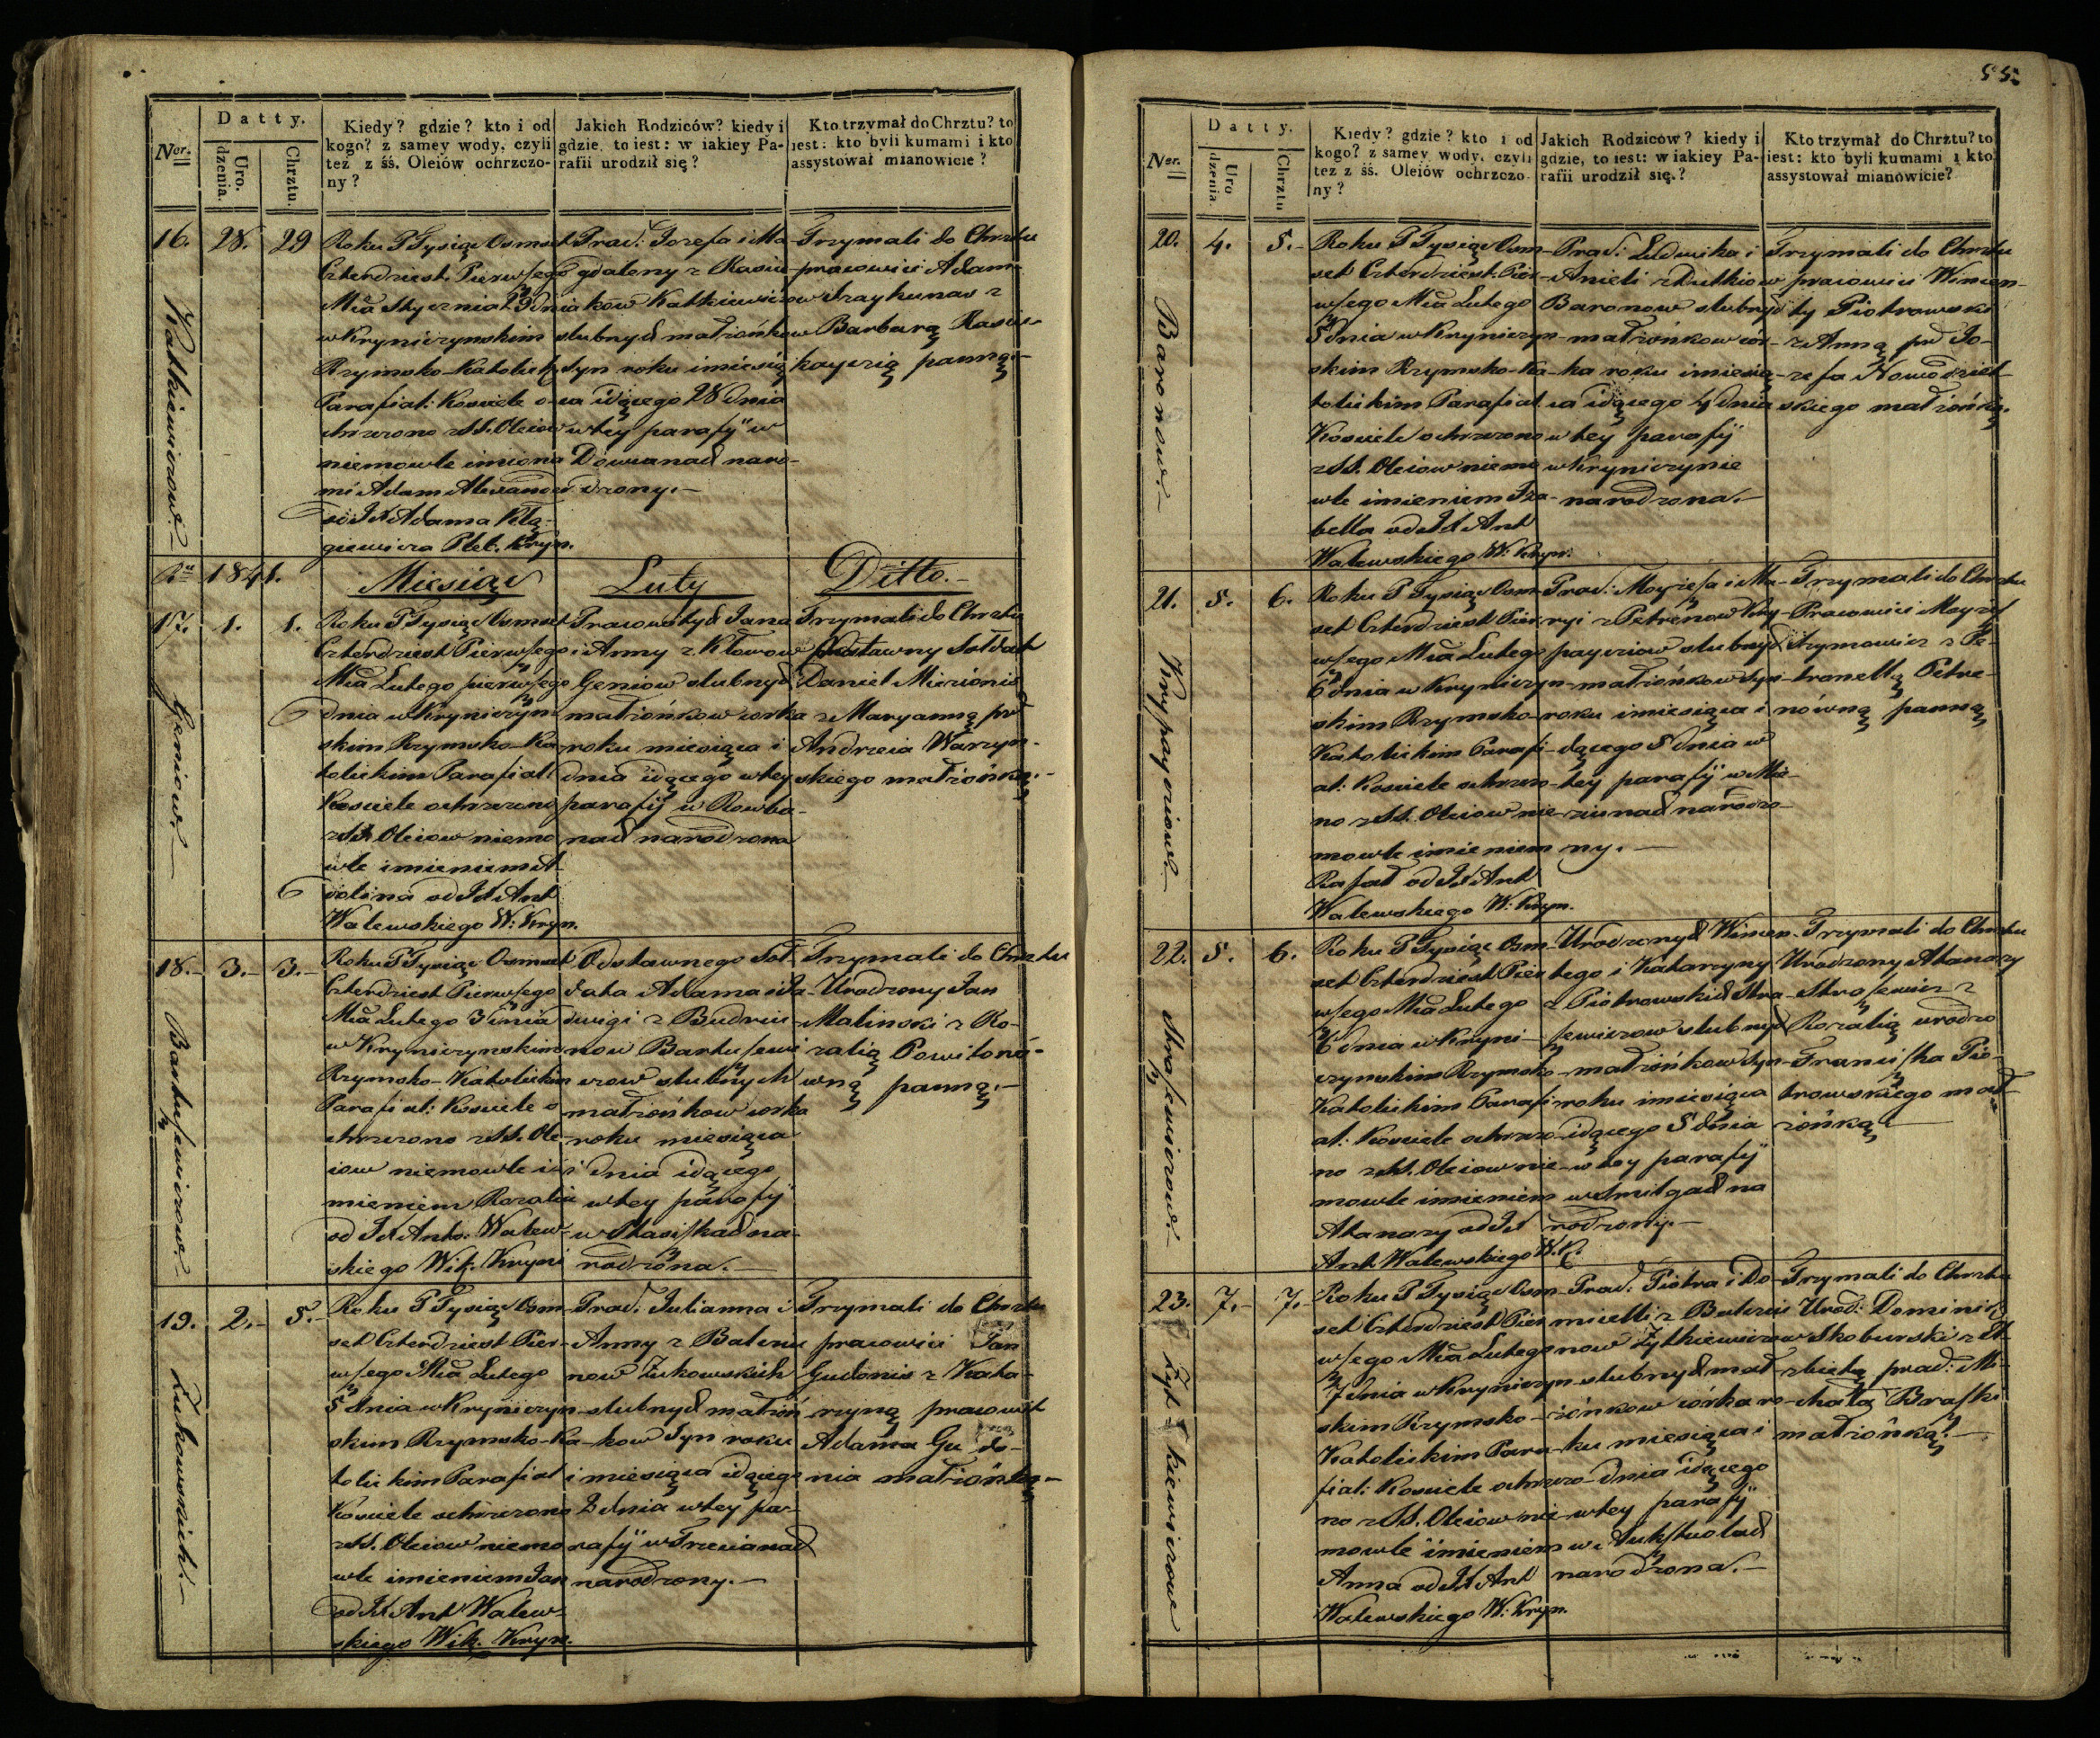 Datty.
Ner.
Uro.
dzenia.
Chrztu.
Kiedy? gdzie? kto i od
kogo? z samey wody, czyli
teź z śś. Oleiów ochrzczo-
ny?
Jakich Rodziców? kiedy i
gdzie, to iest: w iakiey Pa-
rafii urodził się?
Kto trzymał do Chrztu? to
iest: kto byli kumami i kto
assystował mianowicie?
16. 28. 29
Kutkiewiczow.
Roku T Tysiąc Osmset
Czterdziest. Pierwszego
Mca Stycznia 29 dnia
w Kryniczynskim
Rzymsko-Katolick
Parafial: Kosciele o-
chrzczono z SS. Oleiow
niemowle imiona
mi Adam Alexander
od JX Adama
giewicza Pleb. Kryn.
Prac: Jozefa i Ma-
gdaleny z
slubnych małżonkow
Syn roku i miesią
ca idącego 28 dnia
w tey parafij w
naro-
dzony.
Trzymali do Chrztu
pracowici Adam
z
Barbarą
panną.
Ru 1841. Miesiąc Luty Ditto.
17. 1. 1.
Geniow.
Roku T Tysiąc Osmset
Czterdziest Pierwszego
Mca Lutego pierwszego
dnia w Kryniczyn
skim Rzymsko-Ka
tolickim Parafial
Kosciele ochrzczono
z SS. Oleiow niemo
wle imieniem
od JX Ant
Walewskiego W: Kryn.
Pracowitych Jana
i Anny z
Geniow slubnych
małżonkow corka
roku miesiąca i
dnia idącego w tey
parafij w
narodzona
Trzymali do Chrztu
Soldat
Daniel
z Maryanną pr
Andrzeia Warzyn-
skiego małżonką.
18. 3. 3.
Bartuszewiczow.
Roku T Tysiąc Osmset
Czterdziest Pierwszego
Mca Lutego 3 dnia
w Kryniczynskim
Rzymsko-Katolickim
Parafial: Kosciele o
chrzczono z SS. Ole
iow niemowle i
mieniem Rozalia
od JX Anto. Walew-
skiego Wik. Kryni
Odstawnego Sol
data Adama i Ja
dwigi z Budrew
now Bartuszewi
czow slubnych
małżonkow corka
roku miesiąca
i dnia idącego
w tey parafij
na
rodzona.
Trzymali do Chrztu
Urodzony Jan
Malinski z Ro-
zalią
wną panną.
19. 2. 5.
Zukowskich.
Roku T Tysiąc Osm
set Czterdziest Pier-
wszego Mca Lutego
5 dnia w Krynicyn
skim Rzymsko-Ka
tolickim Parafial
Kosciele ochrzczono
z SS. Oleiow niemo
wle imieniem Jan
od JX Ant Walew-
skiego Wik. Kryn.
Prac. Julianna i
Anny z
now Zukowskich
slubnych małżon
kow Syn roku
i miesiąca idącego
2 dnia w tey pa-
rafij w
narodzony.
Trzymali do Chrztu
pracowici Jan
Gudonis z Kata
rzyną pracowit
Adama Gu do-
nia małżonką.
55.
Datty.
Ner.
Uro
dzenia
Chrztu
Kiedy? gdzie? kto i od
kogo? z samey wody, czyli
teź z śś. Oleiów ochrzczo-
ny?
Jakich Rodziców? kiedy i
gdzie, to iest: w iakiey Pa-
rafii urodził się.?
Kto trzymał do Chrztu? to
iest: kto byli kumami i kto
assystował mianowicie?
20. 4. 5.
Baronow.
Roku T Tysiąc Osm-
set Czterdziest. Pier-
wszego Mca Lutego
5 dnia w Krynicyn-
skim Rzymsko-Ka-
tolickim Parafial
Kosciele ochrzczono
z SS. Oleiow niemo
wle imieniem Iza-
bella od JX Ant
Walewskiego W: Kryn.
Prac: Ludwika i
Anieli z Dutkiow
Baronow slubnych
małżonkow cor-
ka roku i miesią-
ca idącego 4 dnia
w tey parafij
w Krynicynie
narodzona.
Trzymali do Chrztu
pracowici Wincen-
ty Piotrowski
z Anną pr Jo-
zefa
skiego małżonką.
21. 5. 6.
Krypayciow.
Roku T Tysiąc Osm
set Czterdziest Pier
wszego Mca Lutego
6 dnia w Krynicyn-
skim Rzymsko-
Katolickim Parafi-
al: Kosciele ochrzczo-
no z SS. Oleiow nie-
mowle imieniem
Rafał od JX Ant
Walewskiego W: Kryn.
Prac: Moyżesza i Ma-
ryi z Petrenow Kry-
payciow slubnych
małżonkow Syn
roku i miesiąca i
dącego 5 dnia w
tey parafij w
narodzo-
ny.
Trzymali do Chrztu
Pracowici Moyżesz
Szymowicz z Pe-
tronellą Petre-
nówną panną
22. 5. 6.
Straszewiczow.
Roku T Tysiąc Osm-
set Czterdziest Pier
wszego Mca Lutego
6 dnia w Kryni-
czynskim Rzymsko-
Katolickim Parafi
al: Kosciele ochrzczo-
no z SS. Oleiow nie-
mowle imieniem
Atanazy od JX
Ant Walewskiego W. K.
Urodzonych Wincen-
tego i Katarzyny
z Piotrowskich Stra-
szewiczow slubnych
małżonkow Syn
roku i miesiąca
idącego 5 dnia
w tey parafij
na
rodzony.
Trzymali do Chrztu
Urodzony Atanazy
Straszewicz z
Rozalią urodzo
Franciszka Pio-
trowskiego mał
żonką
23. 7. 7.
Zytkiewiczow
Roku T Tysiąc Osm
set Czterdziest Pier
wszego Mca Lutego
7 dnia w Krynicyn
skim Rzymsko-
Katolickim Para-
fial: Kosciele ochrzczo-
no z SS. Oleiow nie
mowle imieniem
Anna od JX Ant
Walewskiego W: Kryn.
Prac. Piotra i Do-
micelli z
now Zytkiewiczow
slubnych mał
żonkow córka ro-
ku miesiąca i
dnia idącego
w tey parafij
narodzona.
Trzymali do Chrztu
Urod: Dominik
Skoburski z El-
zbietą prac: Mi-
chała
małżonką.